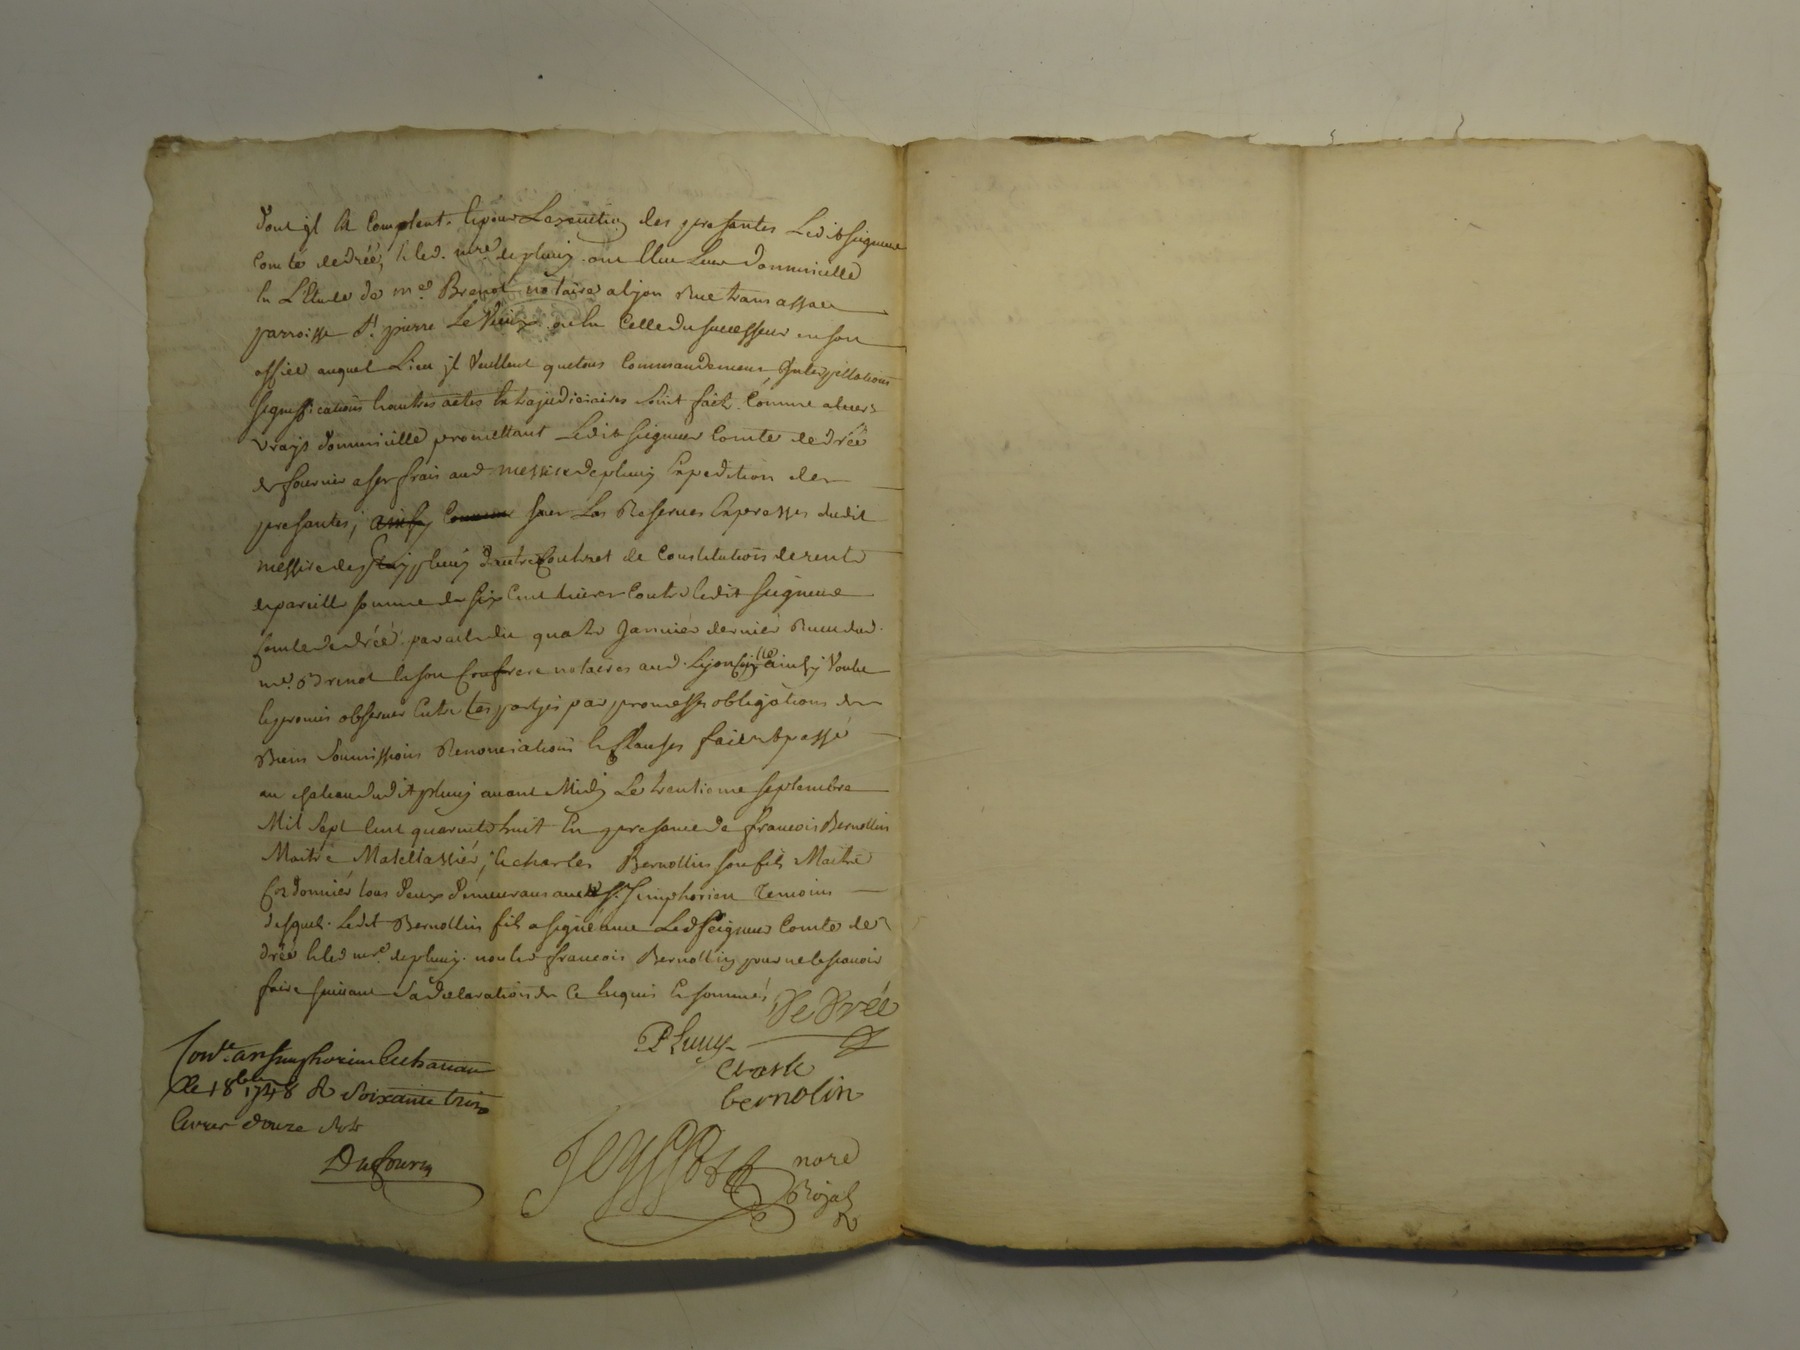 dont jl se Comptent. & pour Lexecution des presantes Ledit seigneur
Comte dedrée, & led. mre. depluvy. ont Elleu Leur Dommicille
En L'Etude de me. Brenot notaire alyon Rue tramassac
parroisse St. pierre Le Vieux ou En Celle du successeur en son
office auquel Lieu jl Veullent quetous Commandemens, Interpellations
significations & autres actes Extrajudiciaires soint fait Comme aleurs
vrays Dommicille promettant Ledit seigneur Comte dedrée
de fournir a ses frais aud messire depluvy Expedition des
presantes, sous Les Reserves Expresses dudit
messire de pluvy d'autre Contrat de Constitution derente
depareille somme de six Cent livres Contre ledit seigneur
Comte dedrée par acte du quatre Janvier dernier Receu dud.
me. Brenot & son Confrere notaires aud. Lyon ainsy Voulu
& promis observer Entre les partyes par promesses obligations de
Biens soumissions Renonciations & Clauses fait & passé
au chateau dudit pluvy avant Midy Le trentieme septembre
Mil sept Cent quarente huit En presance de francois Bernollin
Maitre Matellassier, & charles Bernollin son fils Maitre
Cordonnier tous deux demeurans aud St. simphorien Temoins
desquels Ledit Bernollin fils a signé avec Led seigneur Comte de
drée & led mre. depluvy. non led francois Bernollin pour ne le scavoir
faire suivant sa declaration de Ce Enquis & sommé,
De Drée
Pluvy
charle
bernolin
nore
Royal
Conle. a St simphorien Le chateau
le 1 8bre 1748 R soixante trois
livres douze sols
Dufour